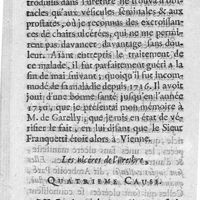 troduits dans l'urethre ne trouva d'obs-
tacles qu'aux vésicules séminales & aux
prostates, où je reconnus des excroissan-
ces de chairs ulcérées, qui ne me permi-
rent pas davancer davantage sans dou-
leur. Aïant entrepris le traitement de
ce malade, il fut parfaitement guéri à la
fin de mai suivant; quoiqu'il fut incom-
modé de sa maladie depuis 1716. Il avoit
joui d'une bonne santé jusqu'en l'année
1730, que je présentai mon mémoire à
M. de Garelly, que je mis en état de vé-
rifier le fait, en lui disant que le Sieur
Franquetti étoit alors à Vienne.
Les ulcéres de l'uretre.
QUATRIEME CAUSE.